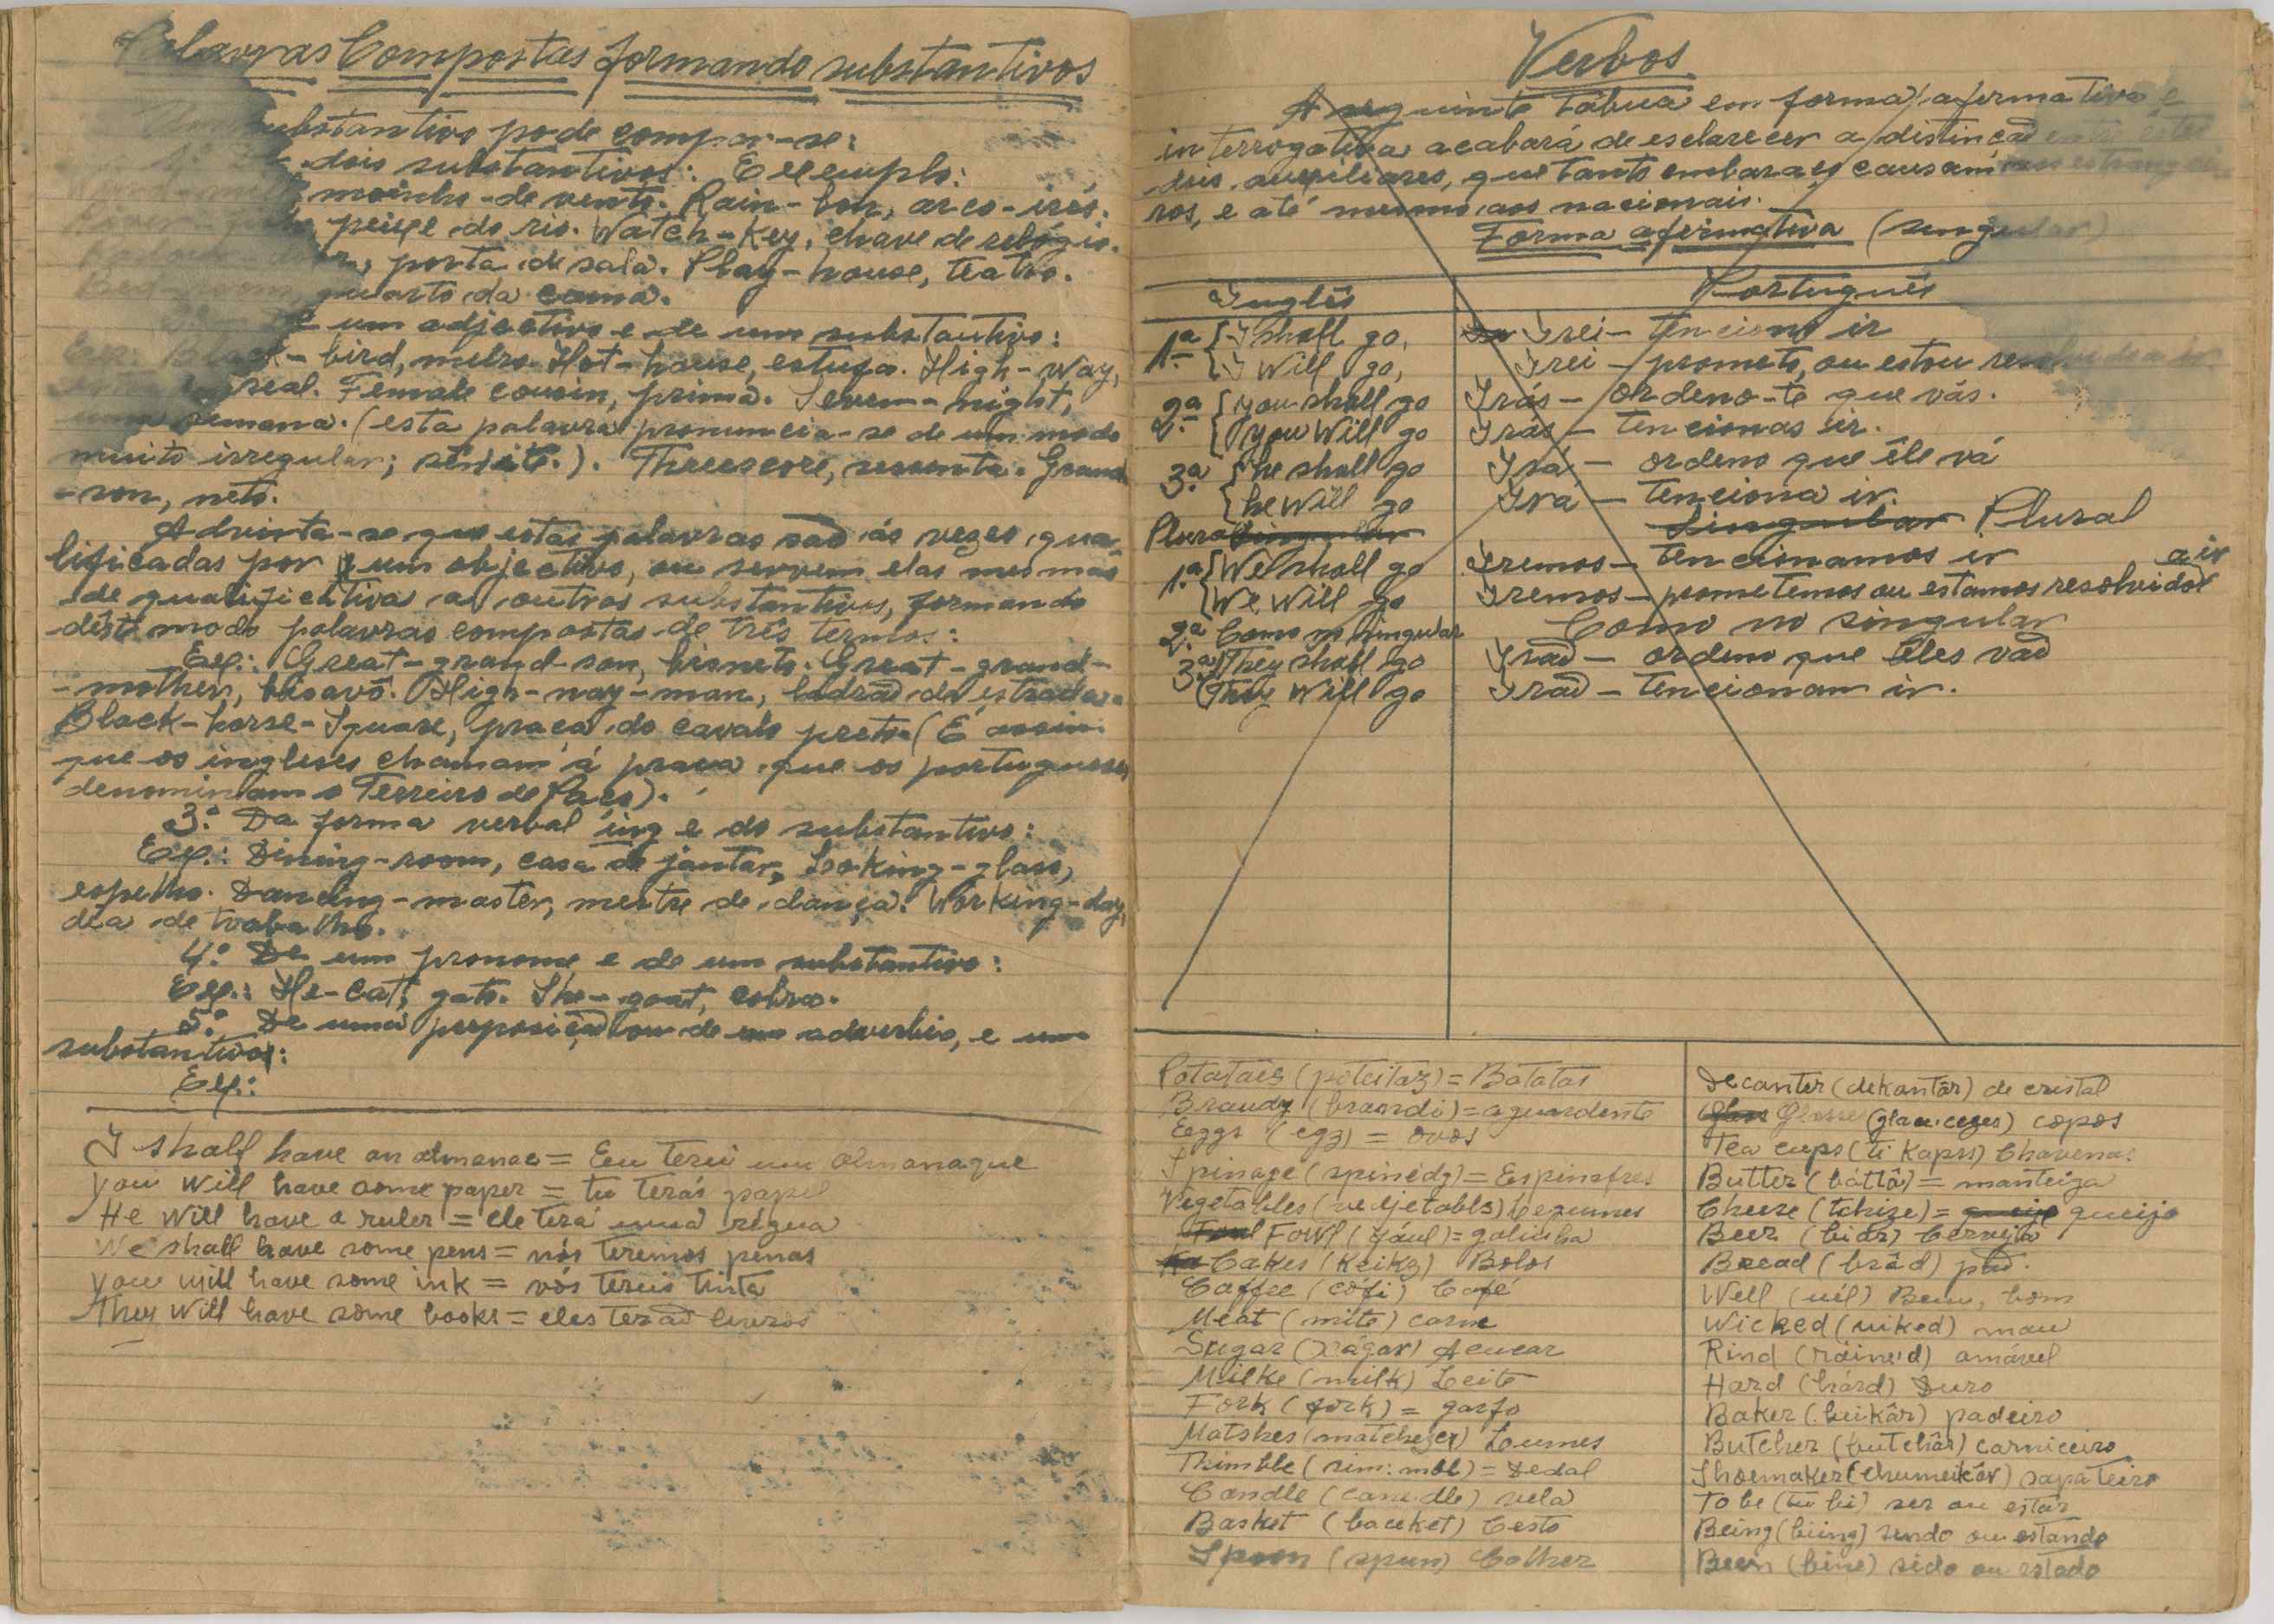 Palavras Compostas formando substantivos
substantivo pode compor-se:
dois substantivos: Exemplo:
moinho-de vento. Rain-bow, arco-irés.
peixe do rio. Watch-Key, chave de relógio.
porta de sala. Play-house, teatro.
quarto da cama.
e um adjectivo e de um substantivo:
Black-bird, melro. Hot-house, estufa. High-way,
real. Female cousin, prima. Seven-night,
uma semana. (esta palavra pronuncia-se de um modo
muito irregular; ). Threescore, sessenta. Grand
-son, neto.
Advirta-se que estas palavras saõ ás vezes, qua-
lificadas por um objectivo, ou servem elas mesmas
de qualificativa a outros substantivos, formando
déste modo palavras compostas de três termos:
Ex.: Great-grand-son, bisneto. Great-grand-
-mother, bisavó. High-way-man, ladraõ de estrada.
Black-horse-Square, praça do cavalo preto. (É assim
que os ingleses chamam á praça que os portugueses
denominam o Terreiro de Paço).
3.º Da forma verbal ing e do substantivo:
Ex.: Dining-room, casa de jantar, Looking-glass,
espelho. Dancing-master, mestre de dança. Working-day,
dia de trabalho.
4.º De um pronome e de um substantivo:
Ex.: He-cat, gato. She-goat, cabra.
5.º De uma preposiçaõ ou de um adverbio, e um
substantivo:
Ex:
I shall have an almanac = Eu terei um almanaque
you will have some paper = tu terás papel
He will have a ruler = ele terá uma régua
We shall have some pens = nós teremos penas
you will have some ink = vós tereis tinta
They will have some books = eles teraõ livros
Verbos
A seguinte tábua em forma afirmativa e
interrogativa acabará de esclarecer a distinçaõ entre êstes
dois auxiliares, que tanto embaraço causam aos estrangei-
ros, e até mesmo aos nacionais.
Forma afirmativa (singular)
Inglês Português
1.ª I shall go, Irei – tenciono ir
I Will go, Irei – prometo, ou estou resolvido a ir
2.ª you shall go Irás – ordeno-te que vás.
you Will go Irás – tencionas ir.
3.ª he shall go Irá – ordeno que êle vá
he Will go Irá – tenciona ir.
Plural Singular Singular Plural
1.ª We shall go Iremos – tencionamos ir
We Will go Iremos – prometemos ou estamos resolvidos a ir
2.ª Como no singular Como no singular
3.ª They shall go Iraõ – ordeno que êles vaõ
They Will go Iraõ – tencionam ir.
Potataes (poteitaz) = Batatas
Brandy (brandi) = aguardente
Eeggs (egz) = ovos
Spinage (spinedg) = Espinafres
Vegetables (vedjetabls) Legumes
Fowl (fául) = galinha
Cakes (Keikz) Bolos
Caffee (cófi) Café
Meat (mite) carne
Sugar (Xágar) Açucar
Milke (milk) Leite
Fork (fork) = garfo
Matshes Lumes
Thimble (sim:mbl) = Dedal
Candle vela
Basket Cesto
Spoon (spun) Colher
Decanter (dekantâr) de cristal
Glasse copos
Tea cups (ti Kaps) Chavenas
Butter (báttâr) = manteiga
Cheese (tchize) = queijo queijo
Beer (biâr) Cerveja
Bread (bréd) paõ.
Well (uél) Bem, bom
Wicked (uiked) mau
Rind (ráine'd) amável
Hard (hárd) Duro
Baker (beikâr) padeiro
Butcher (butchâr) carniceiro
Shoemaker (chumeikâr) sapateiro
To be (tu bi) ser ou estar
Being (biing) sendo ou estando
Been (bine) sido ou estado